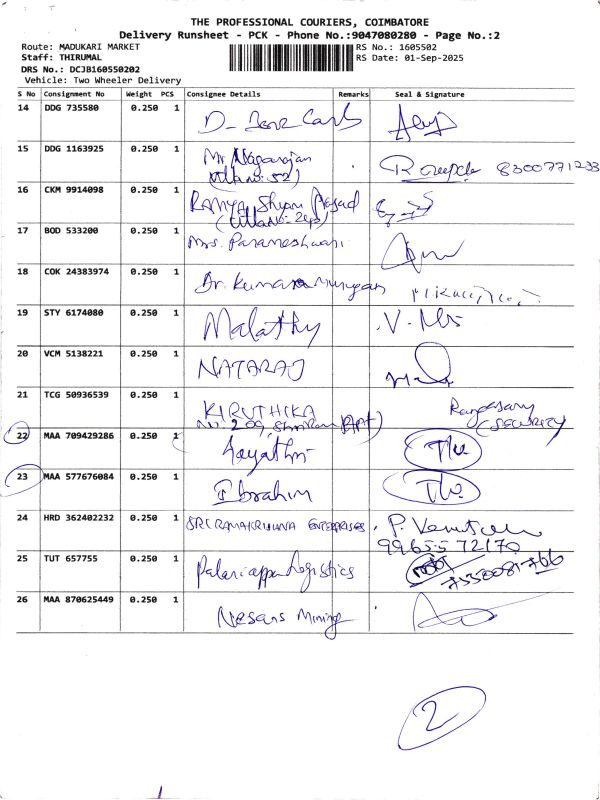 THE PROFESSIONAL COURIERS, COIMBATORE
Delivery Runsheet - PCK - Phone No.:9047080280 - Page No.:2
Route: MADUKARI MARKET
RS No.: 1605502
Staff: THIRUMAL
RS Date: 01-Sep-2025
DRS No.: DCJB160550202
Vehicle: Two Wheeler Delivery
S No Consignment No Weight PCS Consignee Details Remarks Seal & Signature
14 DDG 735580 0.250 1
15 DDG 1163925 0.250 1 Mr. Nagarajan 8300771233
(Villa no: 52)
16 CKM 9914098 0.250 1 RAMYA Shyam Prasad
17 BOD 533200 0.250 1 Mrs. Parameshwari
18 COK 24383974 0.250 1 Dr. Kumaramurugan
19 STY 6174080 0.250 1 Malathy
20 VCM 5138221 0.250 1 NATARAJ
21 TCG 50936539 0.250 1 KIRUTHIKA Rangasamy
No: 209, (Apt) (SECURITY)
22 MAA 709429286 0.250 1 Gayathri
23 MAA 577676084 0.250 1 Ibrahim
24 HRD 362402232 0.250 1 SRI RAMAKRISHNA ENTERPRISES
99655 72170
25 TUT 657755 0.250 1 Palaniappa Logistics
7550081766
26 MAA 870625449 0.250 1 Nesans Mining
2